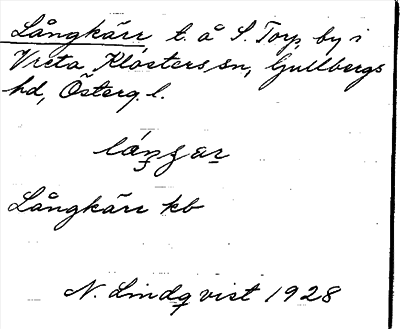 Långkärr t. å S. Torp, by i
Vreta Klosters sn, Gullbergs
hd, Österg. l.
Långkärr kb
N. Lindqvist 1928